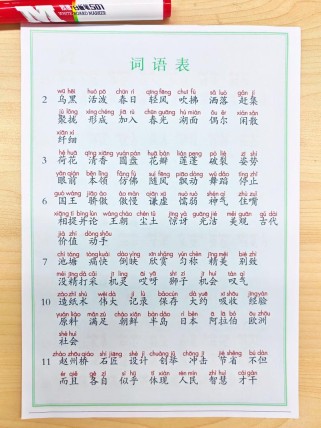 WHITEBOARD MARKER
词语表
wū hēi huó pō chūn rì qīng fēng chuī fú sǎ luò gǎn jí
2 乌黑 活泼 春日 轻风 吹拂 洒落 赶集
jù lǒng xíng chéng jiā rù chūn guāng hú miàn ǒu ěr xián sǎn
聚拢 形成 加入 春光 湖面 偶尔 闲散
xiān xì
纤细
hé huā qīng xiāng yuán pán huā bàn lián peng pò liè zī shì
3 荷花 清香 圆盘 花瓣 莲蓬 破裂 姿势
yǎn qián běn lǐng fǎng fú suí fēng piāo dòng wǔ dǎo tíng zhǐ
眼前 本领 仿佛 随风 飘动 舞蹈 停止
guó wáng jiāo ào ào màn qiān xū nuò ruò shén qì zhù zuǐ
6 国王 骄傲 傲慢 谦虚 懦弱 神气 住嘴
xiāng tí bìng lùn wáng cháo chén tǔ jīng yà guāng jié měi guān gǔ dài
相提并论 王朝 尘土 惊讶 光洁 美观 古代
jià zhí dòng shǒu
价值 动手
chí táng tòng kuài dào yìng xīn shǎng yún chèn jīng měi bié zhì
7 池塘 痛快 倒映 欣赏 匀称 精美 别致
méi jīng dǎ cǎi jī ling āi yā shī zi jī huì tàn qì
没精打采 机灵 哎呀 狮子 机会 叹气
zào zhǐ shù wěi dà jì lù bǎo cún dà yuē xī shōu jīng yàn
10 造纸术 伟大 记录 保存 大约 吸收 经验
yuán liào mǎn zú cháo xiǎn bàn dǎo rì běn ā lā bó ōu zhōu
原料 满足 朝鲜 半岛 日本 阿拉伯 欧洲
shè huì
社会
zhào zhōu qiáo shí jiàng shè jì chuàng jǔ chōng jī jié shěng bú dàn
11 赵州桥 石匠 设计 创举 冲击 节省 不但
ér qiě gè zì sì hū tǐ xiàn rén mín zhì huì cái gàn
而且 各自 似乎 体现 人民 智慧 才干